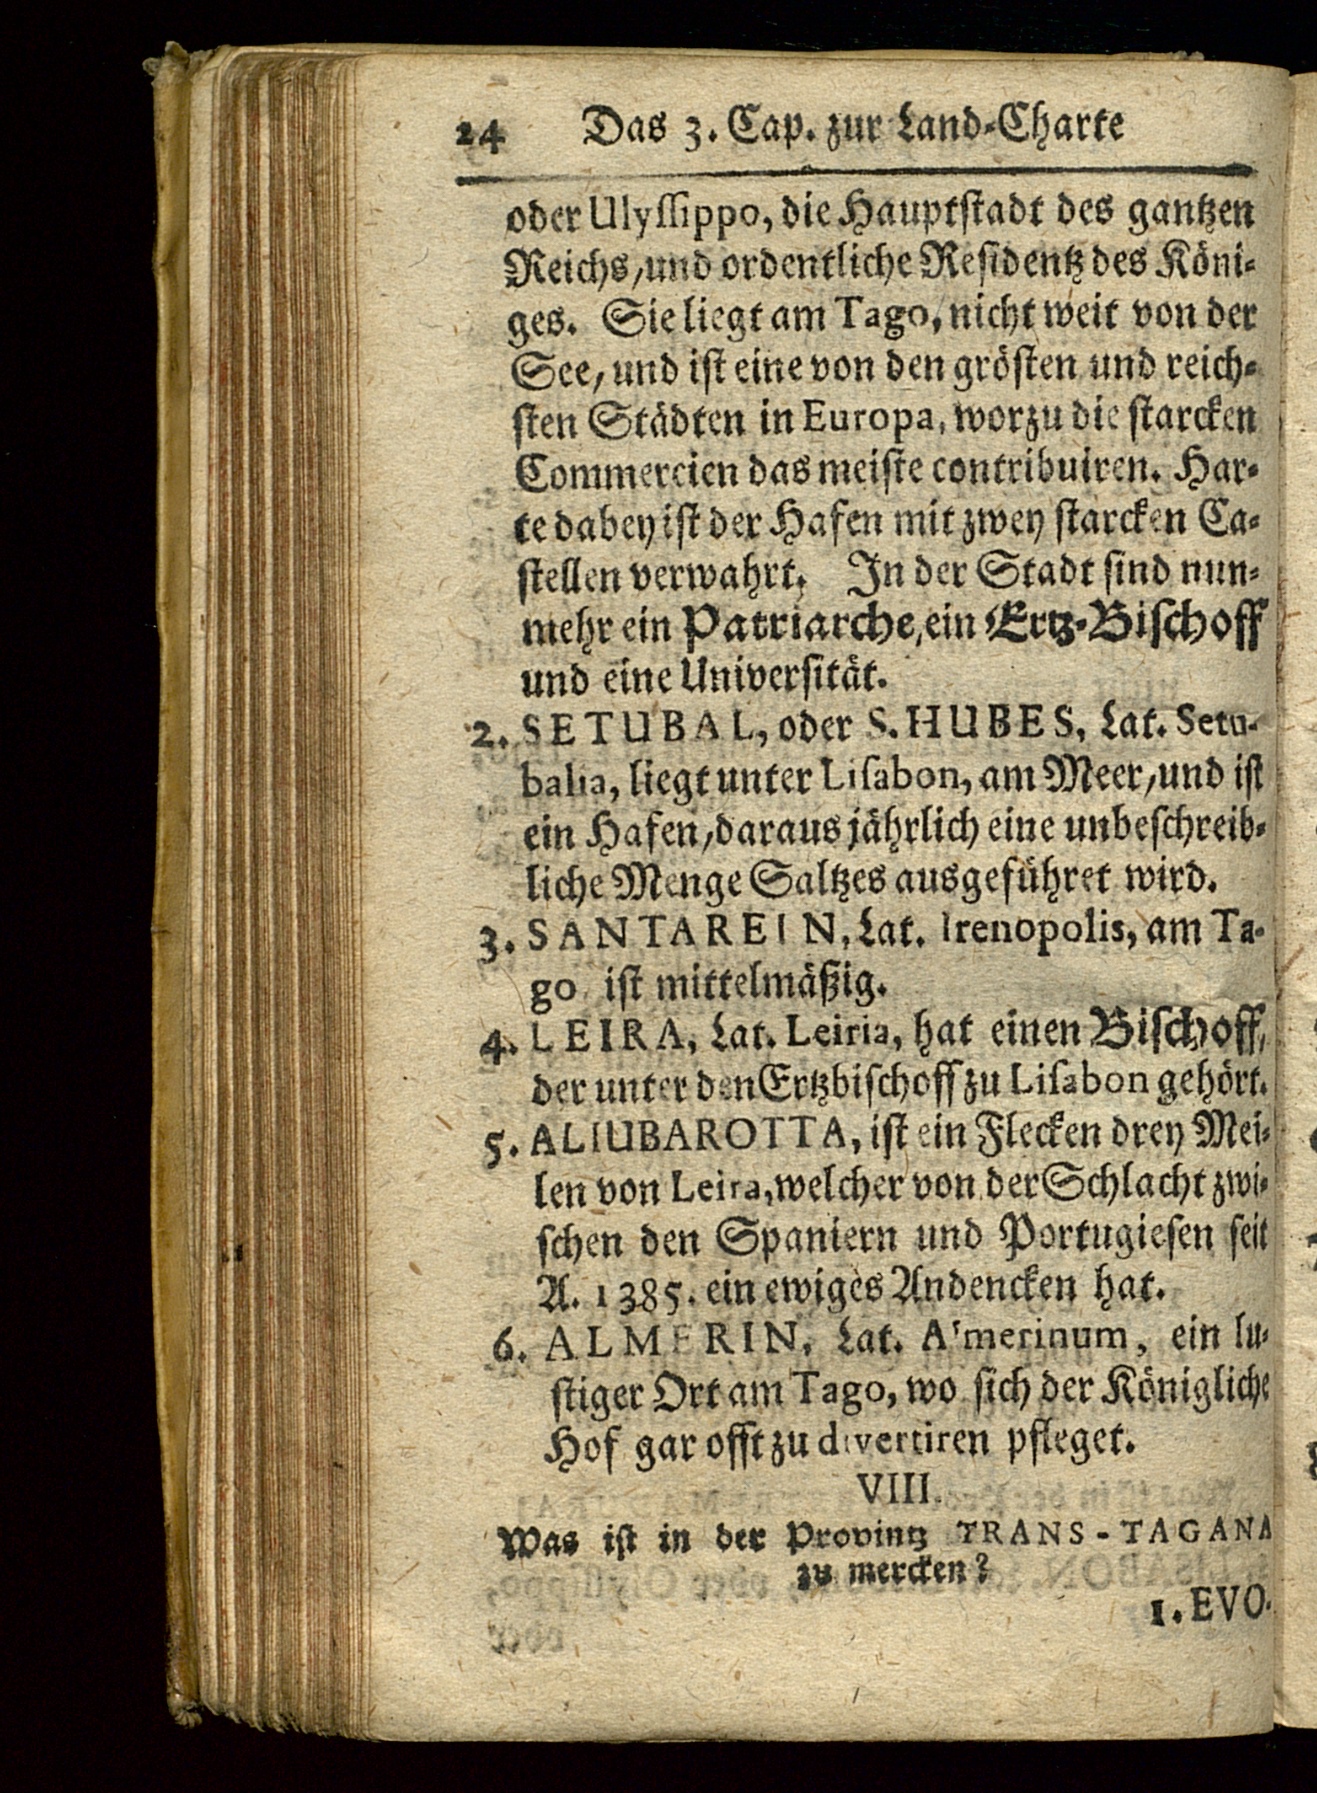 24 Das 3. Cap. zur Land-Charte
oder Ulyſſippo, die Hauptſtadt des gantzen
Reichs, und ordentliche Reſidentz des Köni-
ges. Sie liegt am Tago, nicht weit von der
See, und iſt eine von den gröſten und reich-
ſten Städten in Europa, worzu die ſtarcken
Commercien das meiſte contribuiren. Har-
te dabey iſt der Hafen mit zwey ſtarcken Ca-
ſtellen verwahrt. In der Stadt ſind nun-
mehr ein Patriarche, ein Ertz-Biſchoff
und eine Univerſität.
2. SETUBAL, oder S. HUBES, Lat. Setu-
balia, liegt unter Liſabon, am Meer, und iſt
ein Hafen, daraus jährlich eine unbeſchreib-
liche Menge Saltzes ausgeführet wird.
3. SANTAREIN, Lat. Irenopolis, am Ta-
go iſt mittelmäßig.
4. LEIRA, Lat. Leiria, hat einen Biſchoff,
der unter den Ertzbiſchoff zu Liſabon gehört.
5. ALIUBAROTTA, iſt ein Flecken drey Mei-
len von Leira, welcher von der Schlacht zwi-
ſchen den Spaniern und Portugieſen ſeit
A. 1385. ein ewiges Andencken hat.
6. ALMERIN, Lat. Almerinum, ein lu-
ſtiger Ort am Tago, wo ſich der Königliche
Hof gar offt zu divertiren pfleget.
VIII.
Was iſt in der Provintz TRANS-TAGANA
zu mercken?
1. EVO-